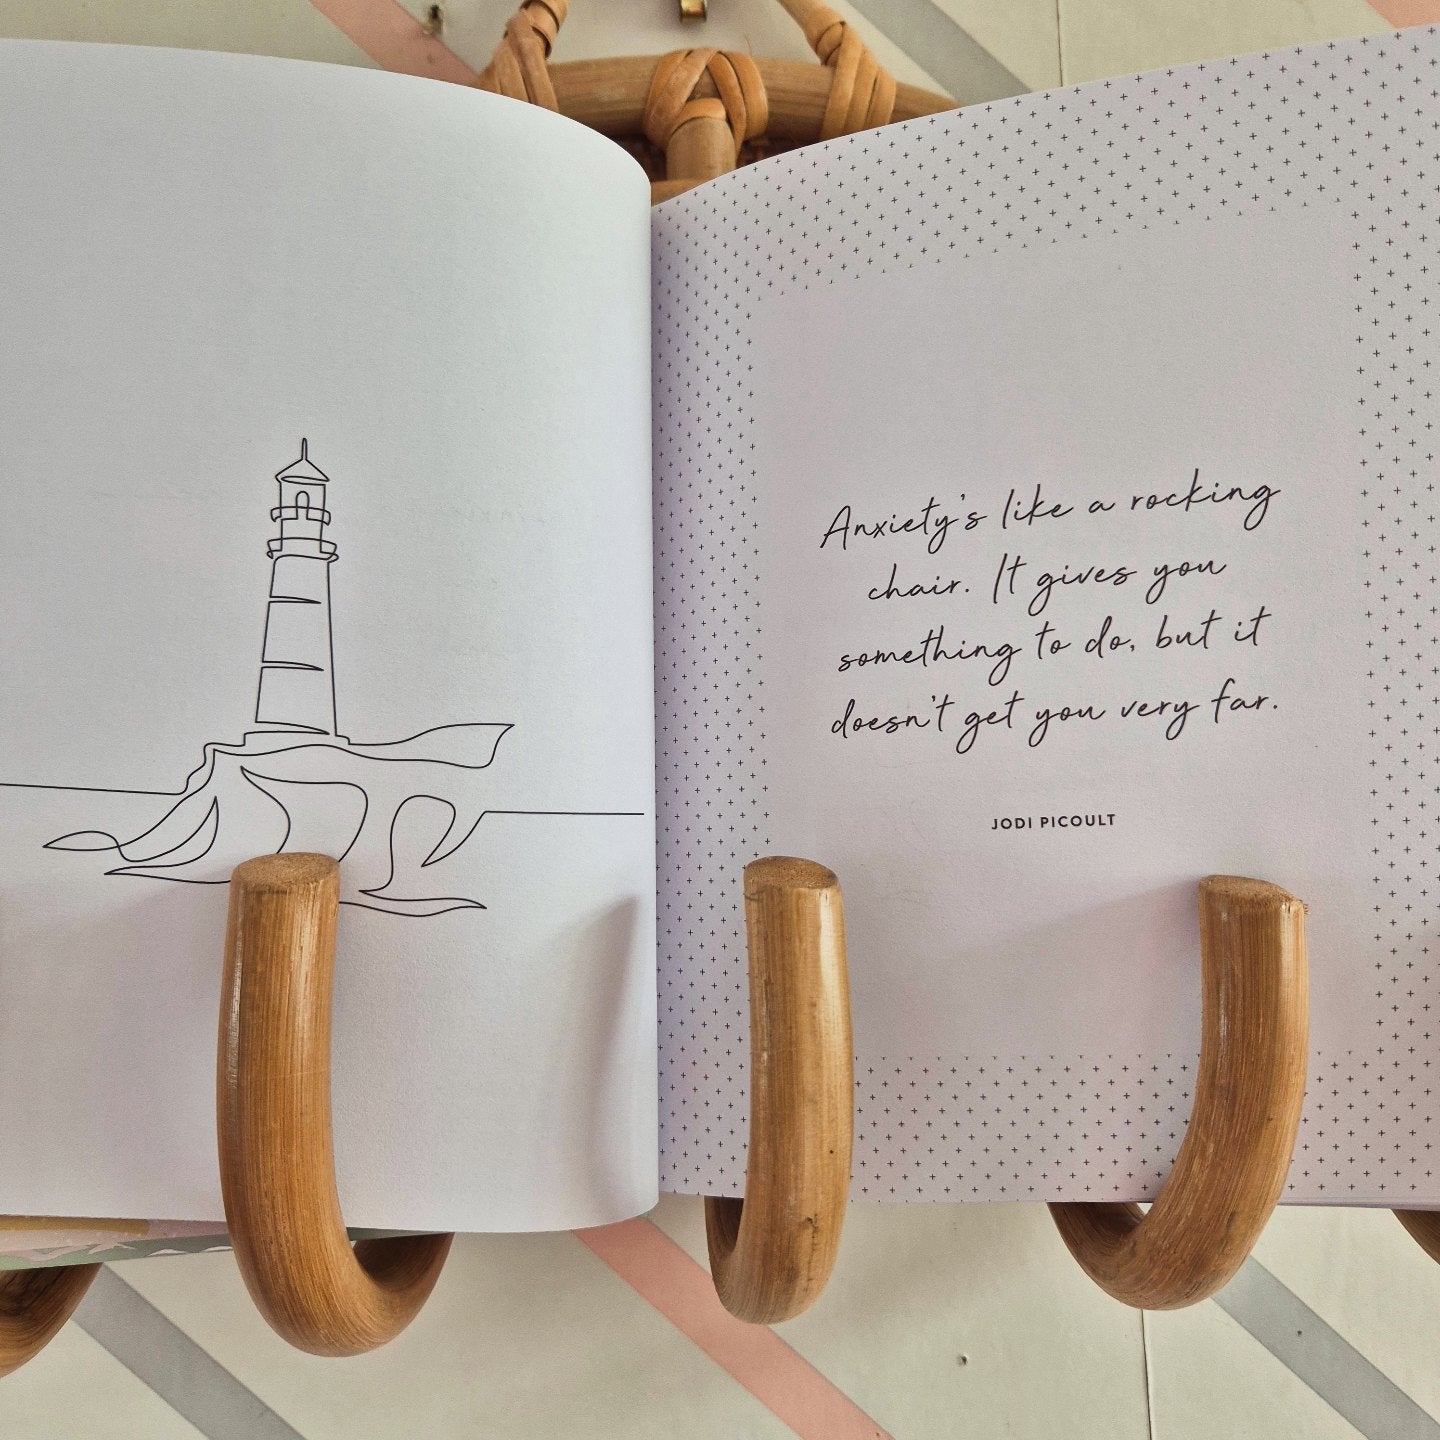 Anxiety's like a rocking
chair. It gives you
something to do, but it
doesn't get you very far.
JODI PICOULT